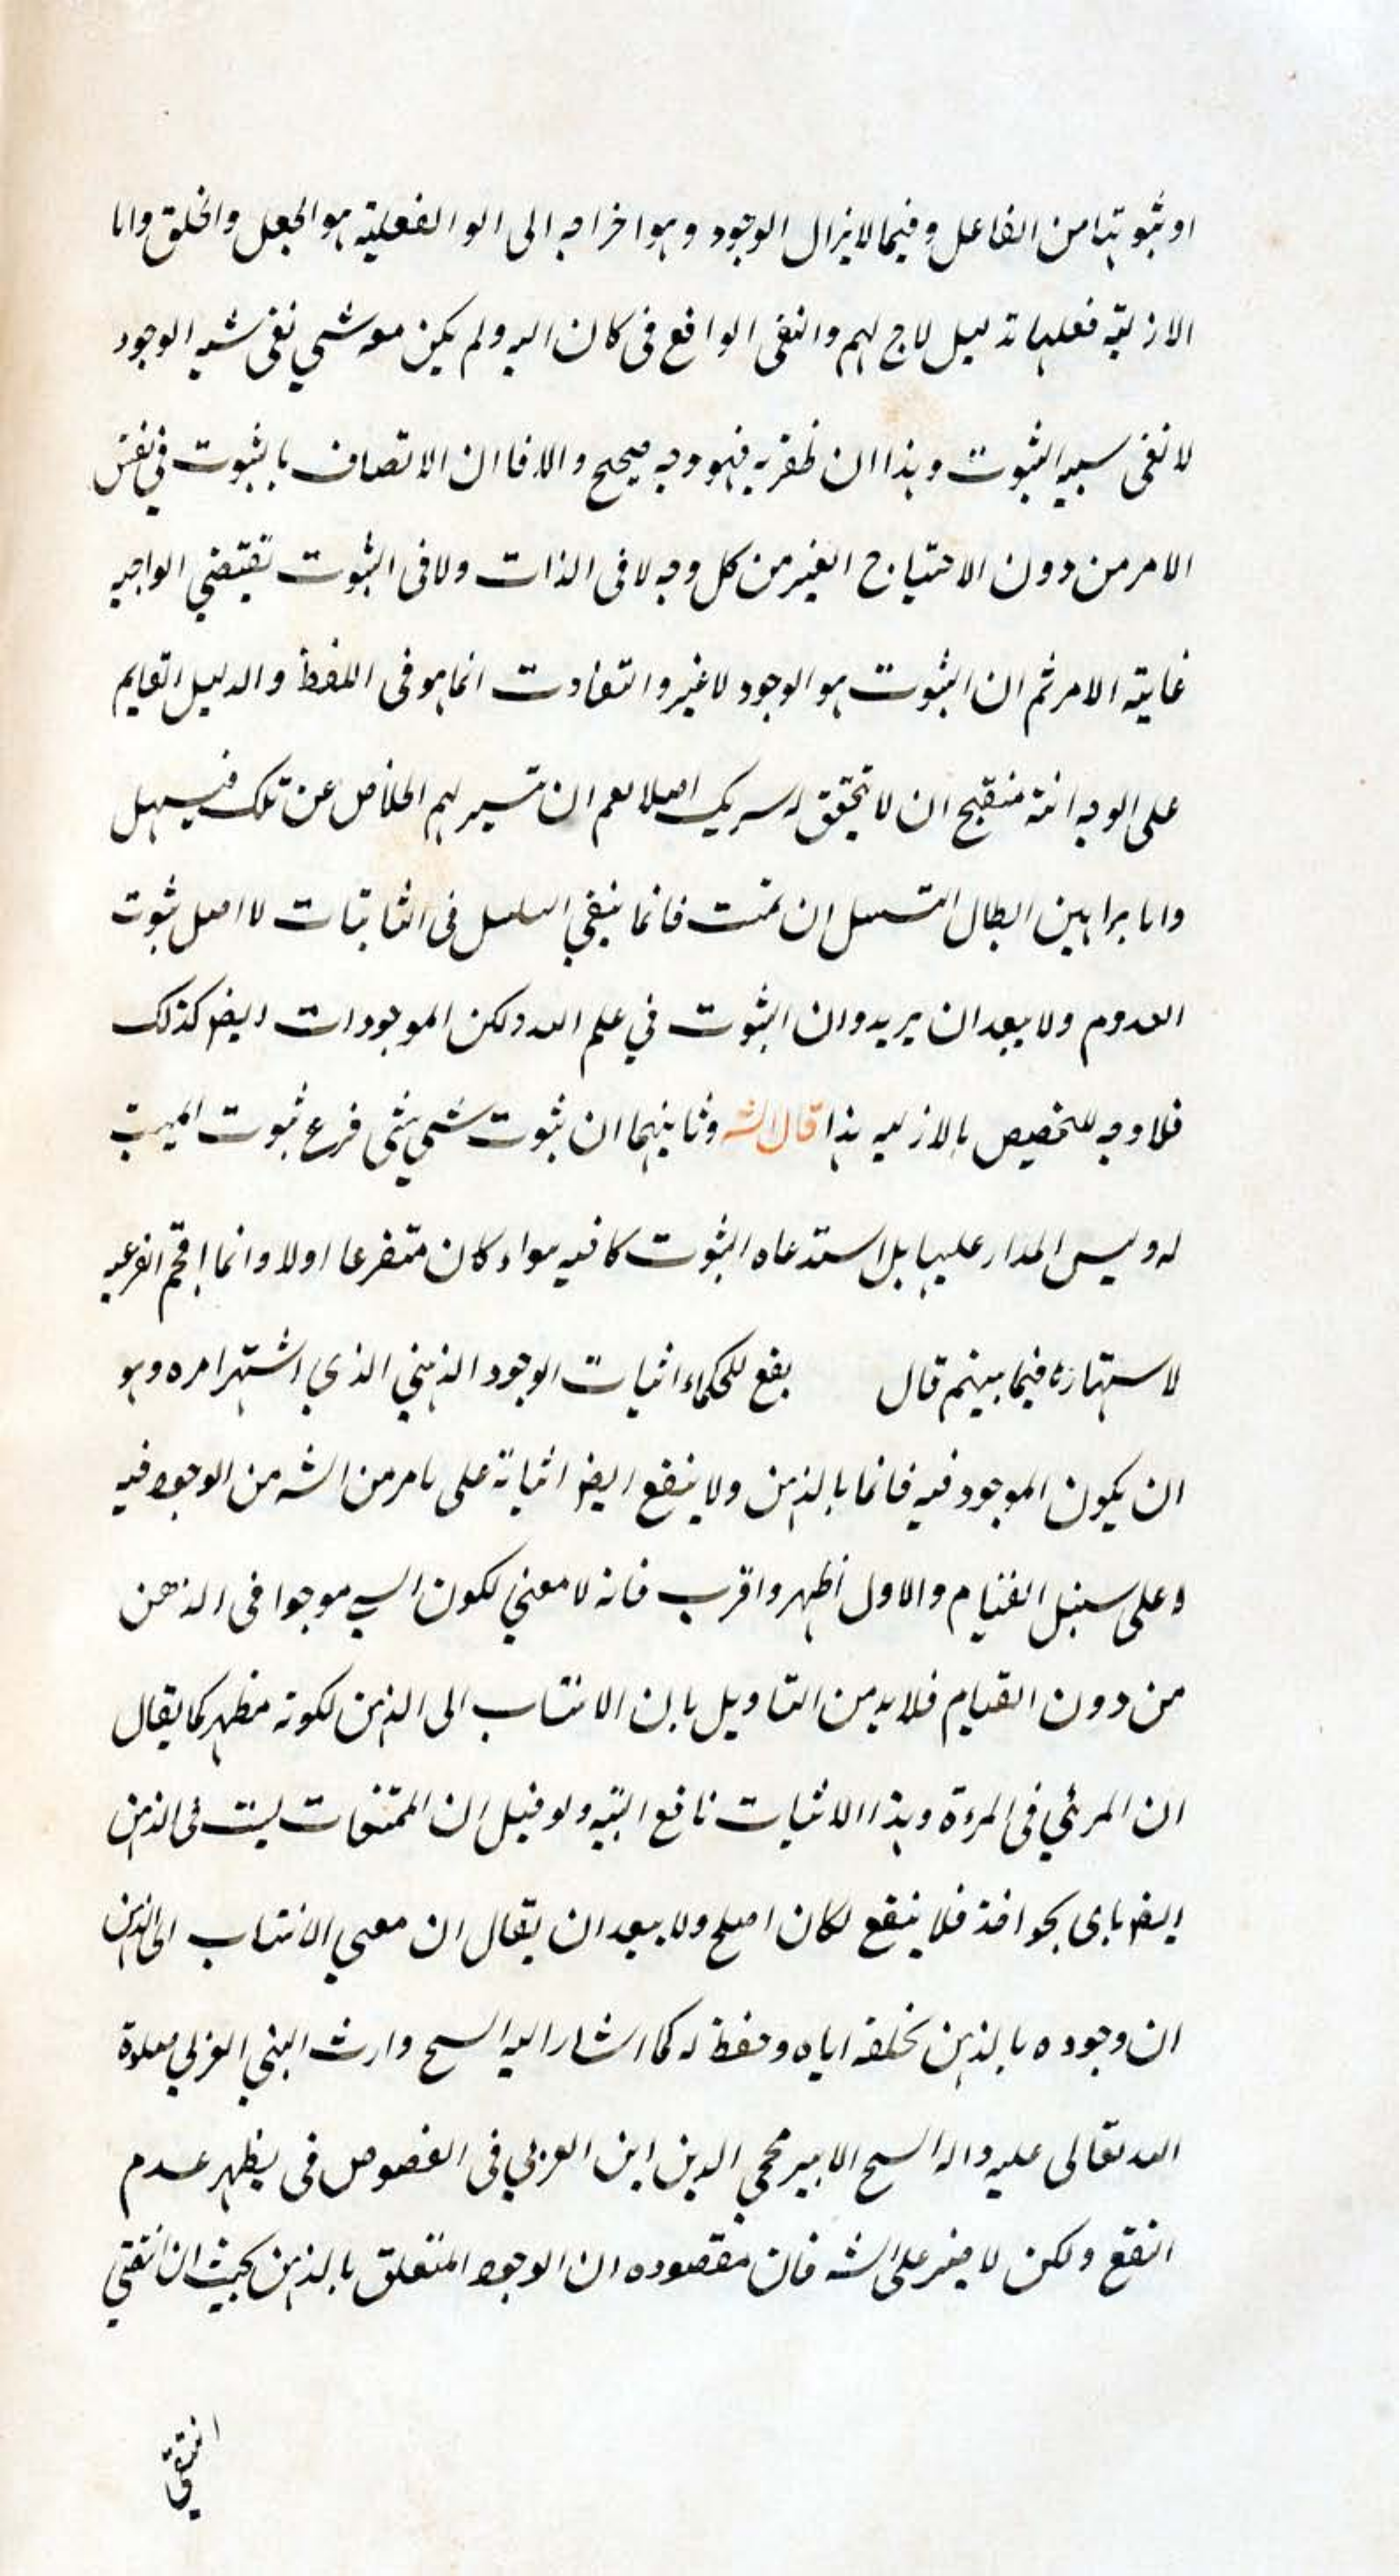 او ثبوتها من الفاعل وفيما لايزال الوجود وهو اخراجه الى الو الفعلية هو الجعل والخلق واما
الازلية فعليها دليل لاح لهم والنفى الواقع فى كان الله ولم يكن معه شىء نفى شيه الوجود
لا نفى سببه الثبوت وهذا ان ظفر به فهو وجه صحيح والا فاان الاتصاف بالثبوت فى نفس
الامر من دون الاحتياج الغير من كل وجه لا فى الذات ولا فى الثبوت تقتضى الواجبه
غاية الامر ثم ان الثبوت هو الوجود لا غير والتفاوت انما هو فى اللفظ والدليل القايم
على الوجه منقبح ان لا تحقق له سريك اصلا نعم ان تسير لهم الخلاص عن تلك فيسهل
واما براهين ابطال التسلسل ان تمت فانما ينفى السلسل فى الثابتات لا اصل ثبوت
العدوم ولا يبعد ان يريدوا ان الثبوت فى علم الله ولكن الموجودات ايضا كذلك
فلا وجه للتخصيص بالازليه هذا قال الشه وثانيهما ان ثبوت شىء لشىء فرع ثبوت المثبت
له وليس المدار عليها بل استدعاه الثبوت كافيه سواء كان متفرعا اولا وانما اقحم الفرعيه
لاستهاره فيما بينهم قال بفع للحكماء اثبات الوجود الذهنى الذي اشتهر امره وهو
ان يكون الموجود فيه قائما بالذهن ولا ينفع ايضا اثباته على ما مر من الشه من الوجود فيه
وعلى سنبل القيام والاول أظهر واقرب فانه لا معنى لكون السى موجوا فى الذهن
من دون القيام فلا بد من التاويل بان الانتساب الى الذهن لكونه مظهر كما يقال
ان المرئي فى المرءة وهذا الاثبات نافع البتيه ولو قيل ان الممتنعات ليست فى الذهن
ايضا باى نحو اخذ فلا ينفع لكان اصلح ولا يبعد ان يقال ان معنى الانتساب الى الذهن
ان وجوده بالذهن بخلقه اياه وحفظه له كما اشار اليه السح وارث النبى العربي صلوة
الله تعالى عليه واله السح الابير محي الدين ابن العربي فى الفصوص فى يظهر عدم
النفع ولكن لا يضر على الشه فان مقصوده ان الوجود المتعلق بالذهن بحيث ان انتفى
انتفى